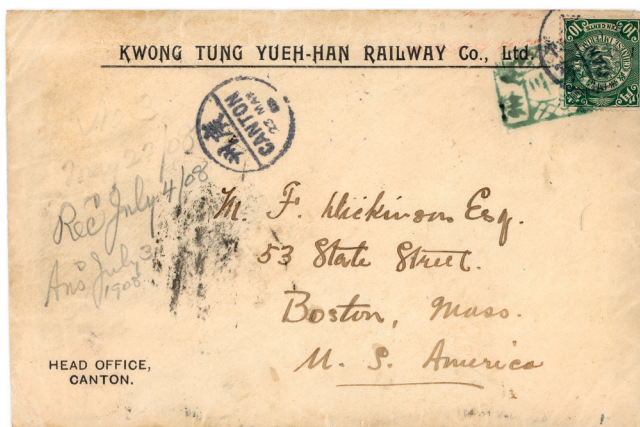 KWONG TUNG YUEH-HAN RAILWAY Co., Ltd.
10
10
廣州
CANTON
23 MAY
Rec'd July 4/08
Ans'd July 31
1908
M. F. Dickinson Esq.
53 State Street.
Boston, Mass.
U. S. America
HEAD OFFICE,
CANTON.